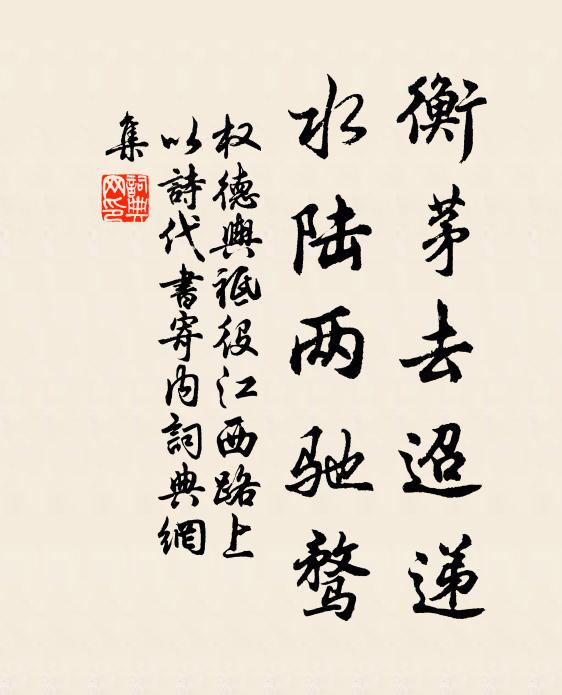 衡茅去迢递
水陆两驰骛
权德舆祗役江西路上
以詩代書寄内詞典網
集
詞典
网印